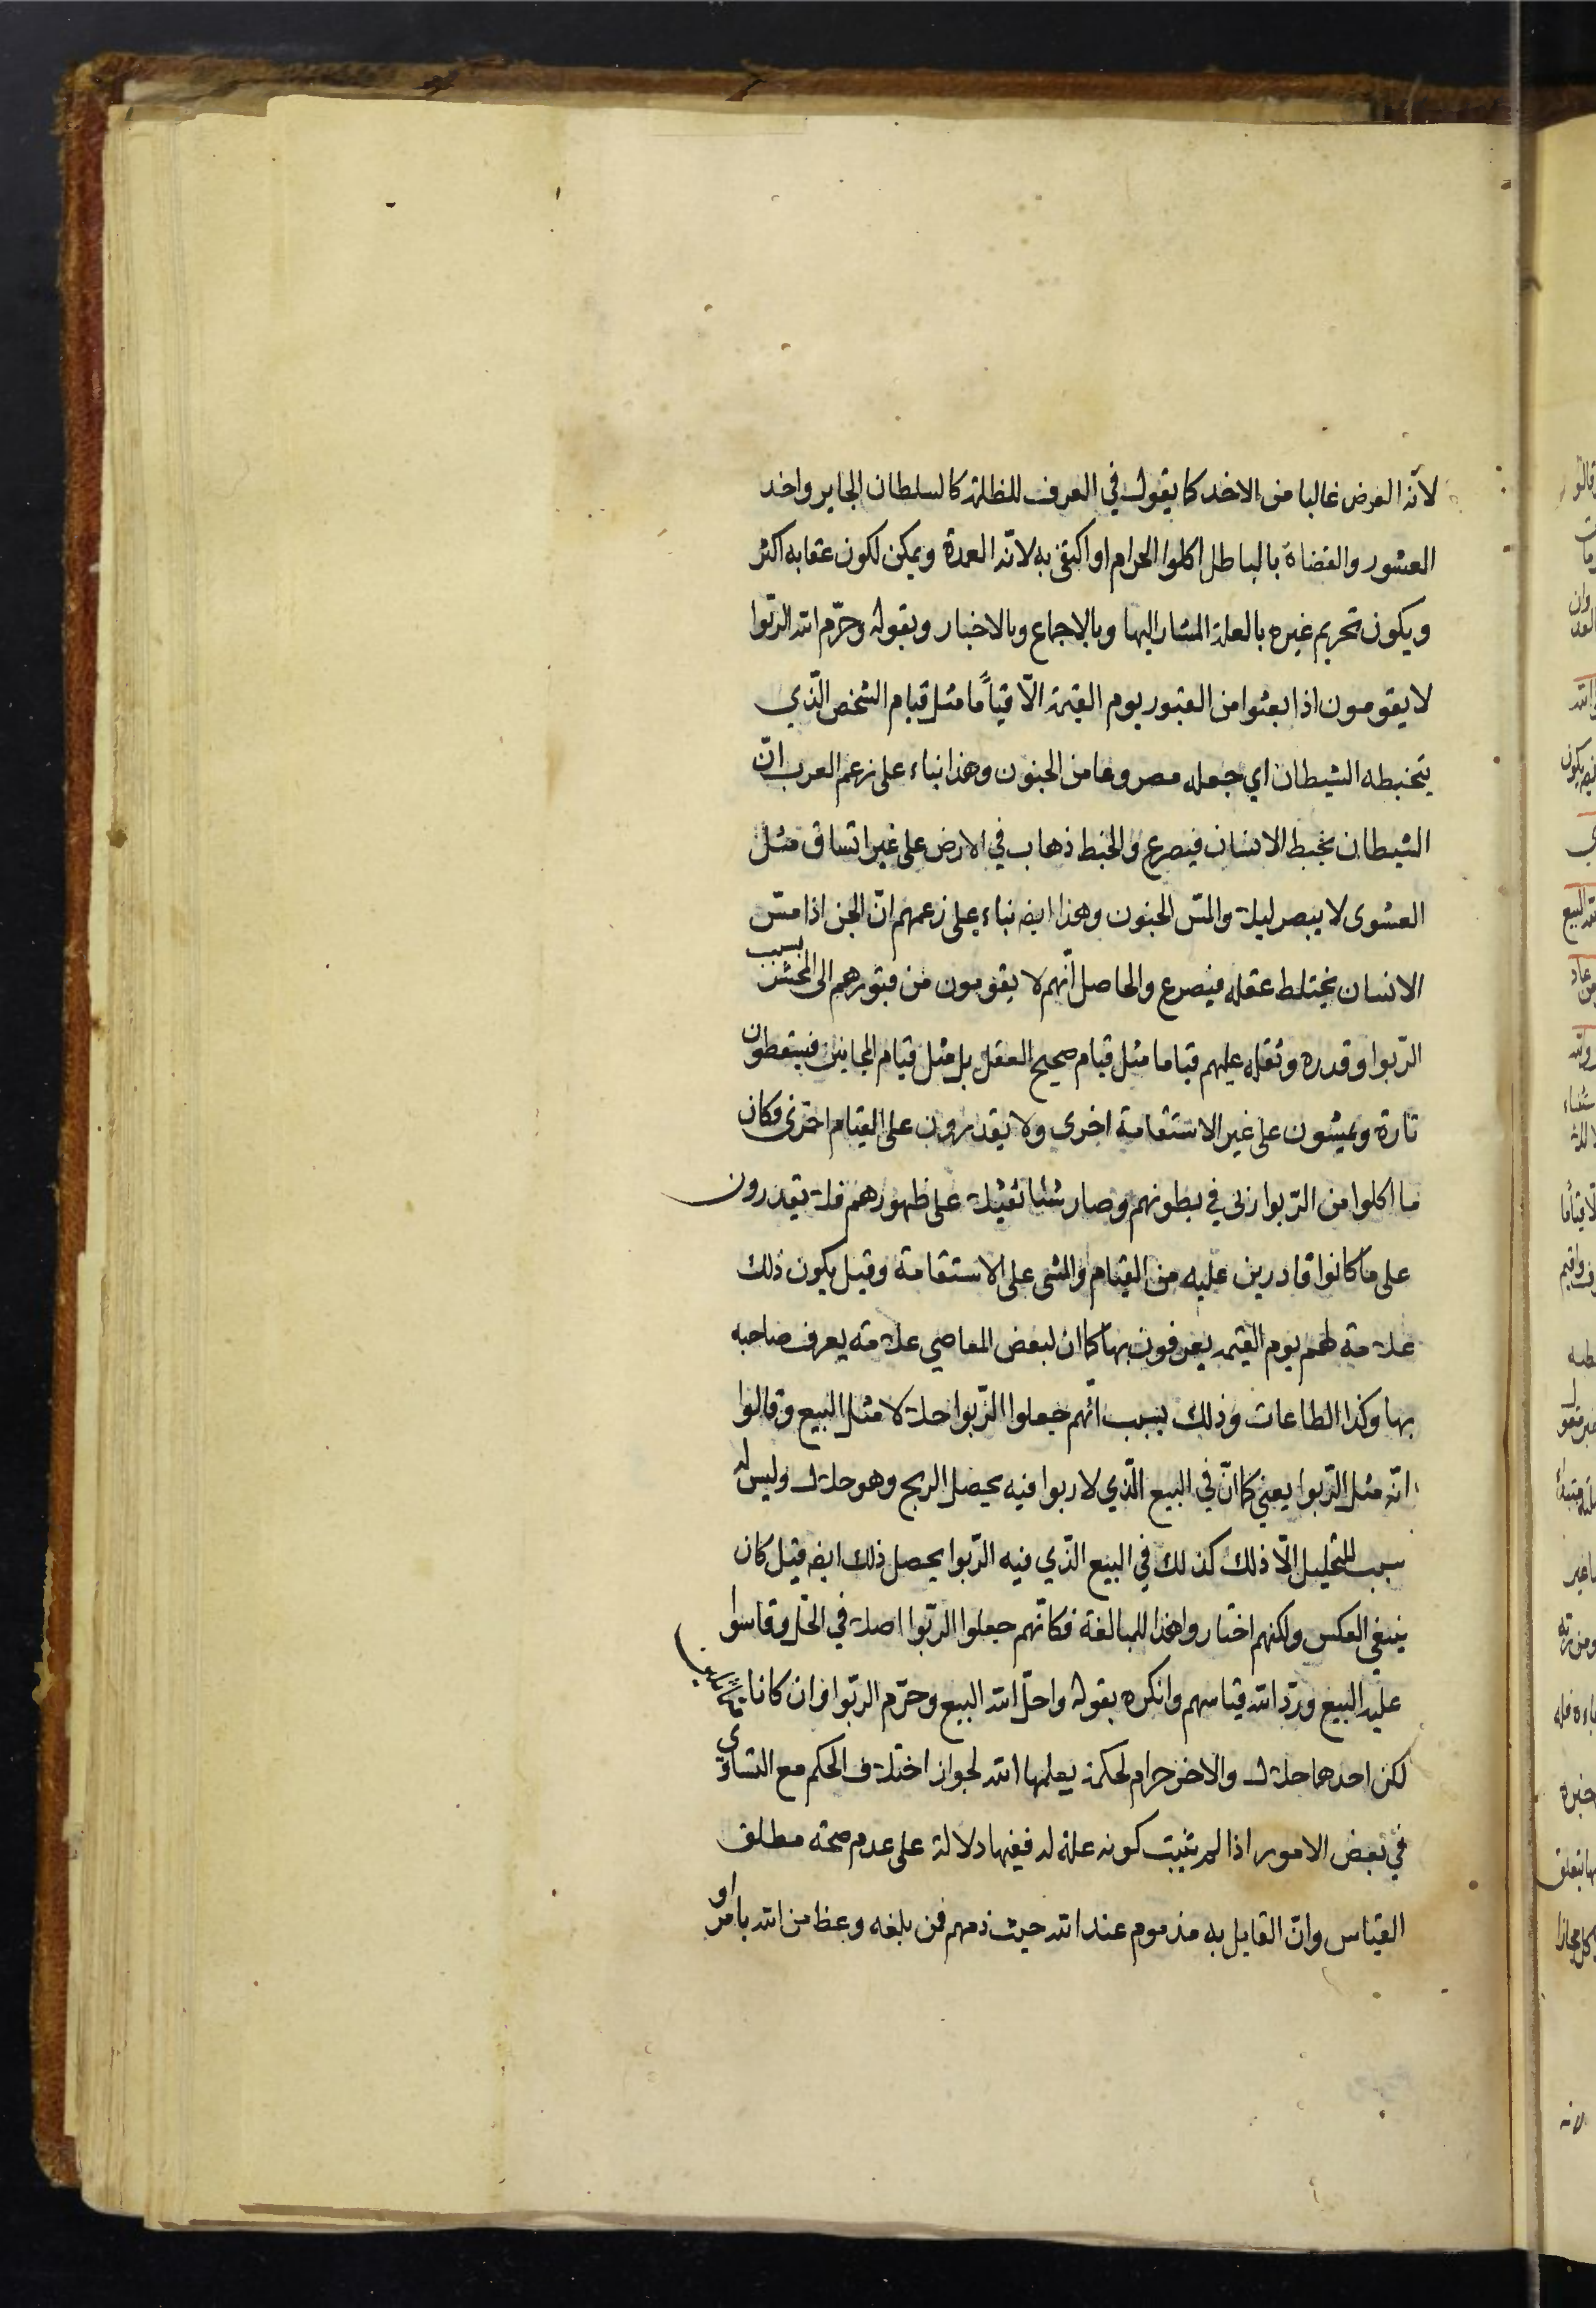 لانّه الغرض غالبا من الاخذ كما يقول في العرف للظلمة كالسلطان الجاير واخذ
العشور والقضاة بالباطل اكلوا الحرام او اكتفى به لانّه العمدة ويمكن لكون عقابه اكثر
ويكون تحريم غيره بالعلة المشار اليها وبالاجماع وبالاخبار وبقوله وحرّم الله الربّوا
لا يقومون اذا بعثوا من القبور يوم القيمة الّا قياماً مثل قيام الشخص الّذي
يتخبطه الشيطان اي جعله مصروعا من الجنون وهذا بناء على زعم العرب انّ
الشيطان يخبط الانسان فيصرع والخبط ذهاب في الارض على غير اتساق مثل
العشوى لا يبصر ليلا والمسّ الجنون وهذا ايضا بناء على زعمهم انّ الجن اذا مسّ
الانسان يختلط عقله فيصرع والحاصل انّهم لا يقومون من قبورهم الى المحشر بسبب
الرّبوا وقدره وثقله عليهم قياما مثل قيام صحيح العقل بل مثل قيام المجانين فيسقطون
تارة ويمشون على غير الاستقامة اخرى ولا يقدرون على القيام اخرى فكان
ما اكلوا من الرّبوا ربى في بطونهم وصار شيئا ثقيلا على ظهورهم فلا يقدرون
على ما كانوا قادرين عليه من القيام والمشى على الاستقامة وقيل يكون ذلك
علامة لهم يوم القيمة يعرفون بها كما ان لبعض المعاصي علامة يعرف صاحبه
بها وكذا الطاعات وذلك بسبب انّهم جعلوا الرّبوا حلالا مثل البيع وقالوا
انّه مثل الرّبوا يعني كما انّ في البيع الّذي لا ربوا فيه يحصل الربح وهو حلال وليس له
سبب للتحليل الّا ذلك كذلك في البيع الّذي فيه الرّبوا يحصل ذلك ايضا قيل كان
ينبغي العكس ولكنهم اختاروا هذا للمبالغة فكانّهم جعلوا الربّوا اصلا في الحّل وقاسوا
عليه البيع وردّ الله قياسهم وانكره بقوله واحلّ الله البيع وحرّم الربّوا وان كانا
لكن احدهما حلال والاخر حرام لحكمة يعلمها الله لجواز اختلاف الحكم مع التساوي
في بعض الامور اذا لم يثبت كونه علة له ففيها دلالة على عدم صحّة مطلق
القياس وانّ القايل به مذموم عند الله حيث ذمهم فمن بلغه وعظ من الله بامر او